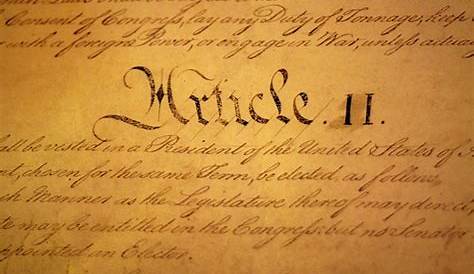 Consent of Congress, lay any Duty of Tonnage, keep
with a foreign Power, or engage in War, unless actua
Article. II.
all be vested in a President of the United States of A
, chosen for the same Term, be elected, as follows
ch Manner as the Legislature thereof may direct
te may be entitled in the Congress: but no Senato
ppointed an Elector.